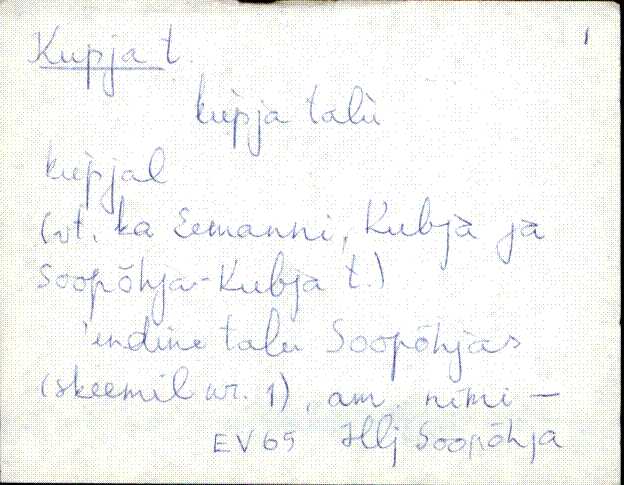 Kupja t. 1
kùpja talù
kùpjal
(vt. ka Eemanni, Kubja ja
Soopõhja-Kubja t.)
'endine talu Soopõhjas
(skeemil nr. 1), am. nimi –
EV65 Hlj Soopõhja